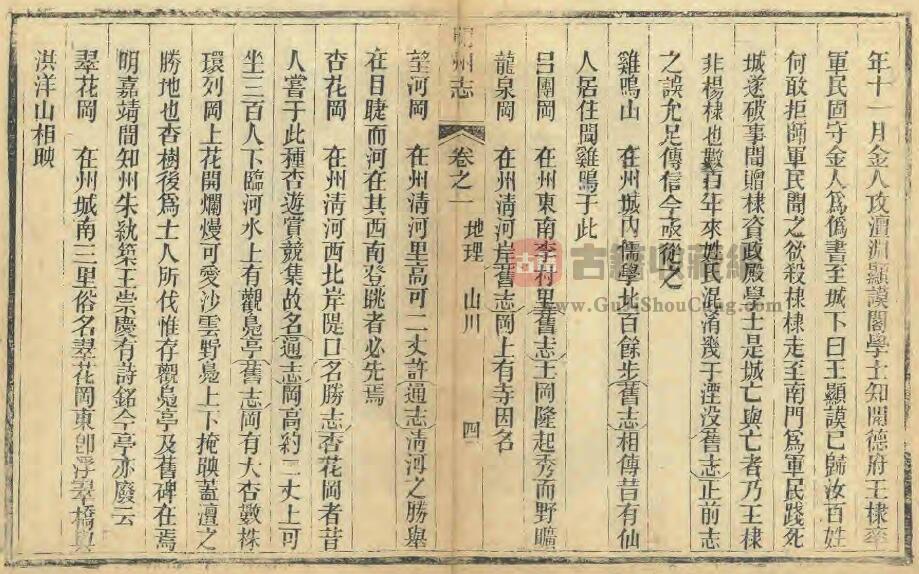 年十一月金人攻澶淵顯謨閣學士知開德府王棣率
軍民固守金人爲僞書至城下曰王顯謨已歸汝百姓
何敢拒師軍民聞之欲殺棣棣走至南門爲軍民踐死
城遂破事聞贈棣資政殿學士是城亡與亡者乃王棣
非楊棣也數百年來姓氏混淆幾于湮没舊志正前志
之誤允足傳信今亟從之
雞鳴山 在州城内儒學北百餘步舊志相傳昔有仙
人居住聞雞鳴于此
呂團岡 在州東南李村里舊志土岡隆起秀而野曠
龍泉岡 在州清河岸舊志岡上有寺因名
州志 卷之一 地理 山川 四
望河岡 在州清河里高可二丈許通志清河之勝舉
在目睫而河在其西南登眺者必先焉
杏花岡 在州清河西北岸隄口名勝志杏花岡者昔
人嘗于此種杏遊賞競集故名通志岡高約二丈上可
坐三百人下臨河水上有觀鳧亭舊志岡有大杏數株
環列岡上花開爛熳可愛沙雲野鳧上下掩映蓋澶之
勝地也杏樹後爲士人所伐惟存觀鳧亭及舊碑在焉
明嘉靖間知州朱紈築王崇慶有詩銘今亭亦廢云
翠花岡 在州城南三里俗名翠花岡東卽浮翠橋與
洪洋山相映
古籍收藏網
www.GuJiShouCang.com